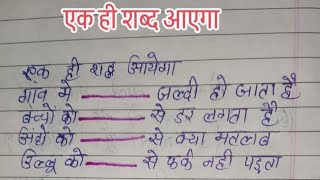 एक ही शब्द आएगा
एक ही शब्द आयेगा
गाव मे ——— जल्दी हो जाता है
बच्चों को ——— से डर लगता है
अंधे को ——— से क्या मतलब
उल्लू को ——— से फर्क नही पड़ता